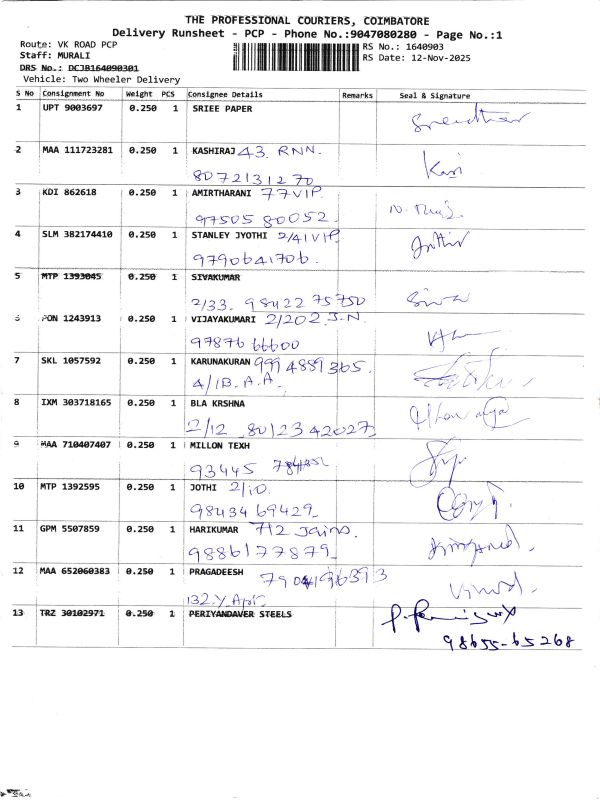 THE PROFESSIONAL COURIERS, COIMBATORE
Delivery Runsheet - PCP - Phone No.:9047080280 - Page No.:1
Route: VK ROAD PCP
RS No.: 1640903
Staff: MURALI
RS Date: 12-Nov-2025
DRS No.: DCJB164090301
Vehicle: Two Wheeler Delivery
S No Consignment No Weight PCS Consignee Details Remarks Seal & Signature
1 UPT 9003697 0.250 1 SRIEE PAPER Sreedhar
2 MAA 111723281 0.250 1 KASHIRAJ 43. RNN.
8072131270
3 KDI 862618 0.250 1 AMIRTHARANI 77 VIP
97505 80052
4 SLM 382174410 0.250 1 STANLEY JYOTHI 2/41 VIP
9790641706.
5 MTP 1393045 0.250 1 SIVAKUMAR
2/33. 98422 75750 Siva
6 PON 1243913 0.250 1 VIJAYAKUMARI 2/202 J.N.
97876 66600
7 SKL 1057592 0.250 1 KARUNAKURAN 999 4889 365.
4/1B. A.A.
8 IXM 303718165 0.250 1 BLA KRSHNA
2/12 8012342027
9 MAA 710407407 0.250 1 MILLON TEXH
93445
10 MTP 1392595 0.250 1 JOTHI 2/10
98434 69429
11 GPM 5507859 0.250 1 HARIKUMAR 712 Jains.
9886177879
12 MAA 652060383 0.250 1 PRAGADEESH
132.Y. Apr.
13 TRZ 30102971 0.250 1 PERIYANDAVER STEELS
98655-65268